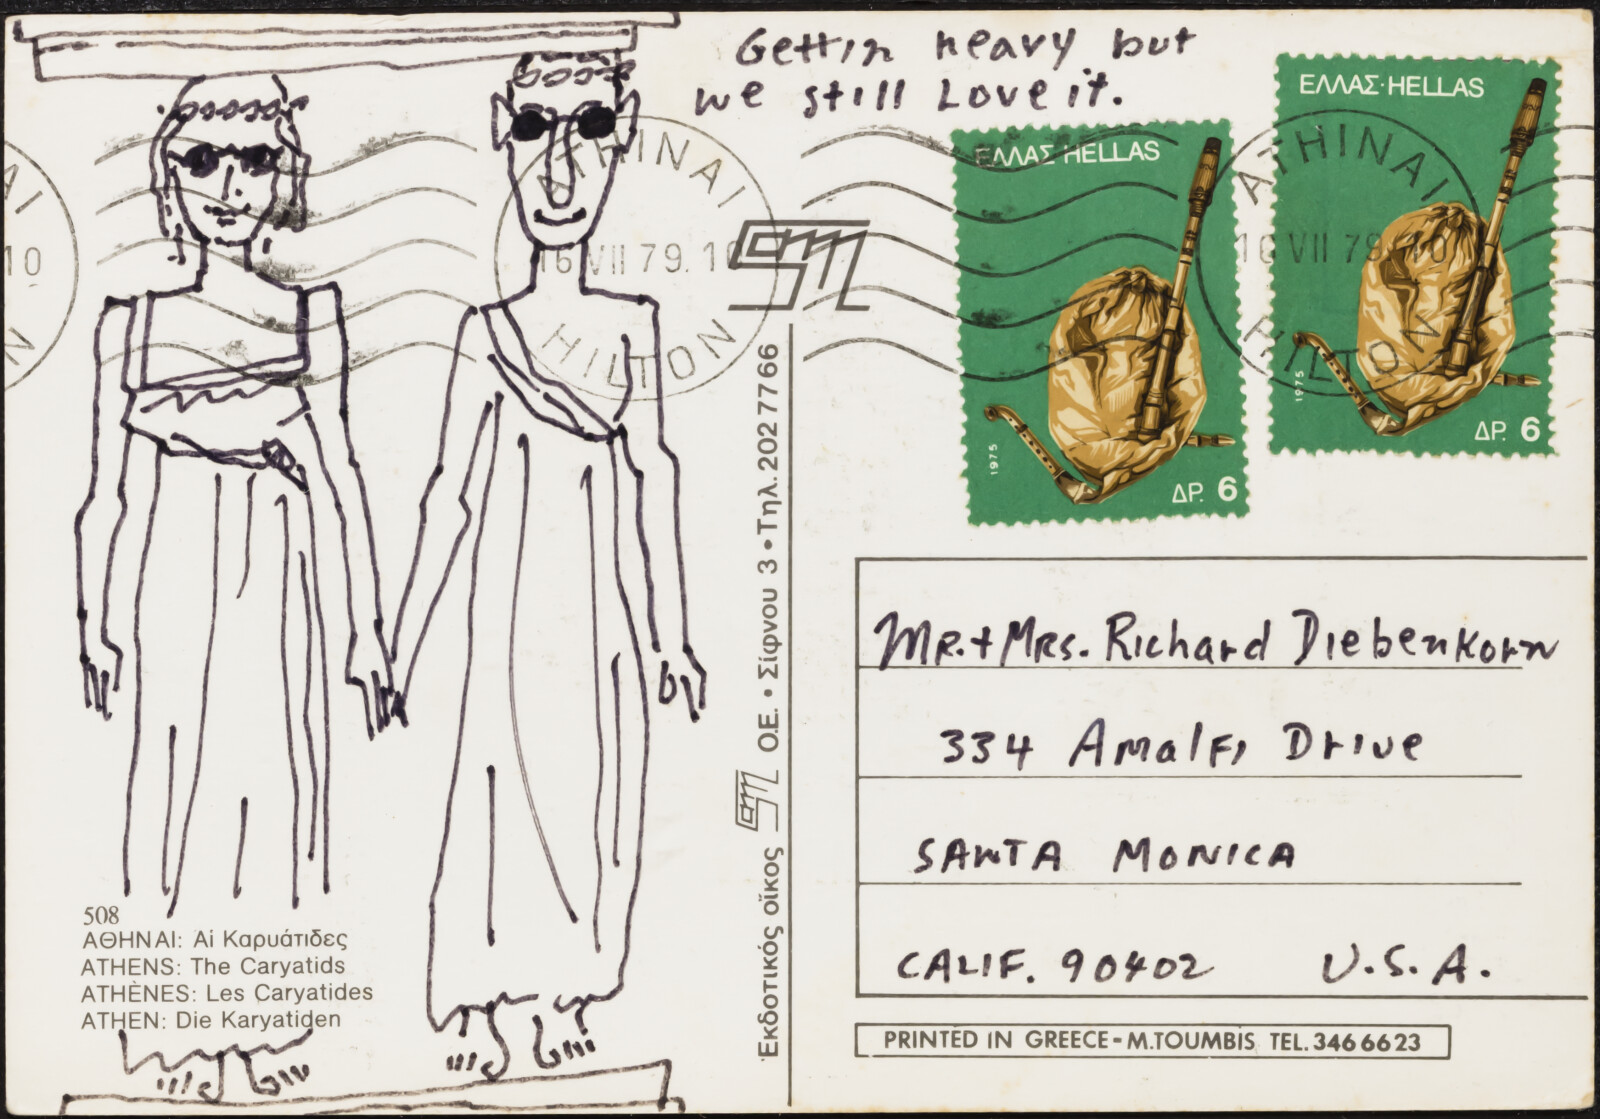 Gettin heavy but
we still Love it.
ΕΛΛΑΣ HELLAS
1975
ΔΡ. 6
ΕΛΛΑΣ·HELLAS
1975
ΔΡ. 6
ATHINAI
16 VII 79.10
HILTON
ATHINAI
16 VII 79.10
HILTON
AI
10
N
Mr. + Mrs. Richard Diebenkorn
334 Amalfi Drive
SANTA MONICA
CALIF. 90402 U.S.A.
PRINTED IN GREECE - M.TOUMBIS TEL. 346 66 23
Ἐκδοτικός οἶκος
Ο.Ε. • Σίφνου 3 • Τηλ. 202 7766
508
ΑΘΗΝΑΙ: Αἱ Καρυάτιδες
ATHENS: The Caryatids
ATHÈNES: Les Caryatides
ATHEN: Die Karyatiden